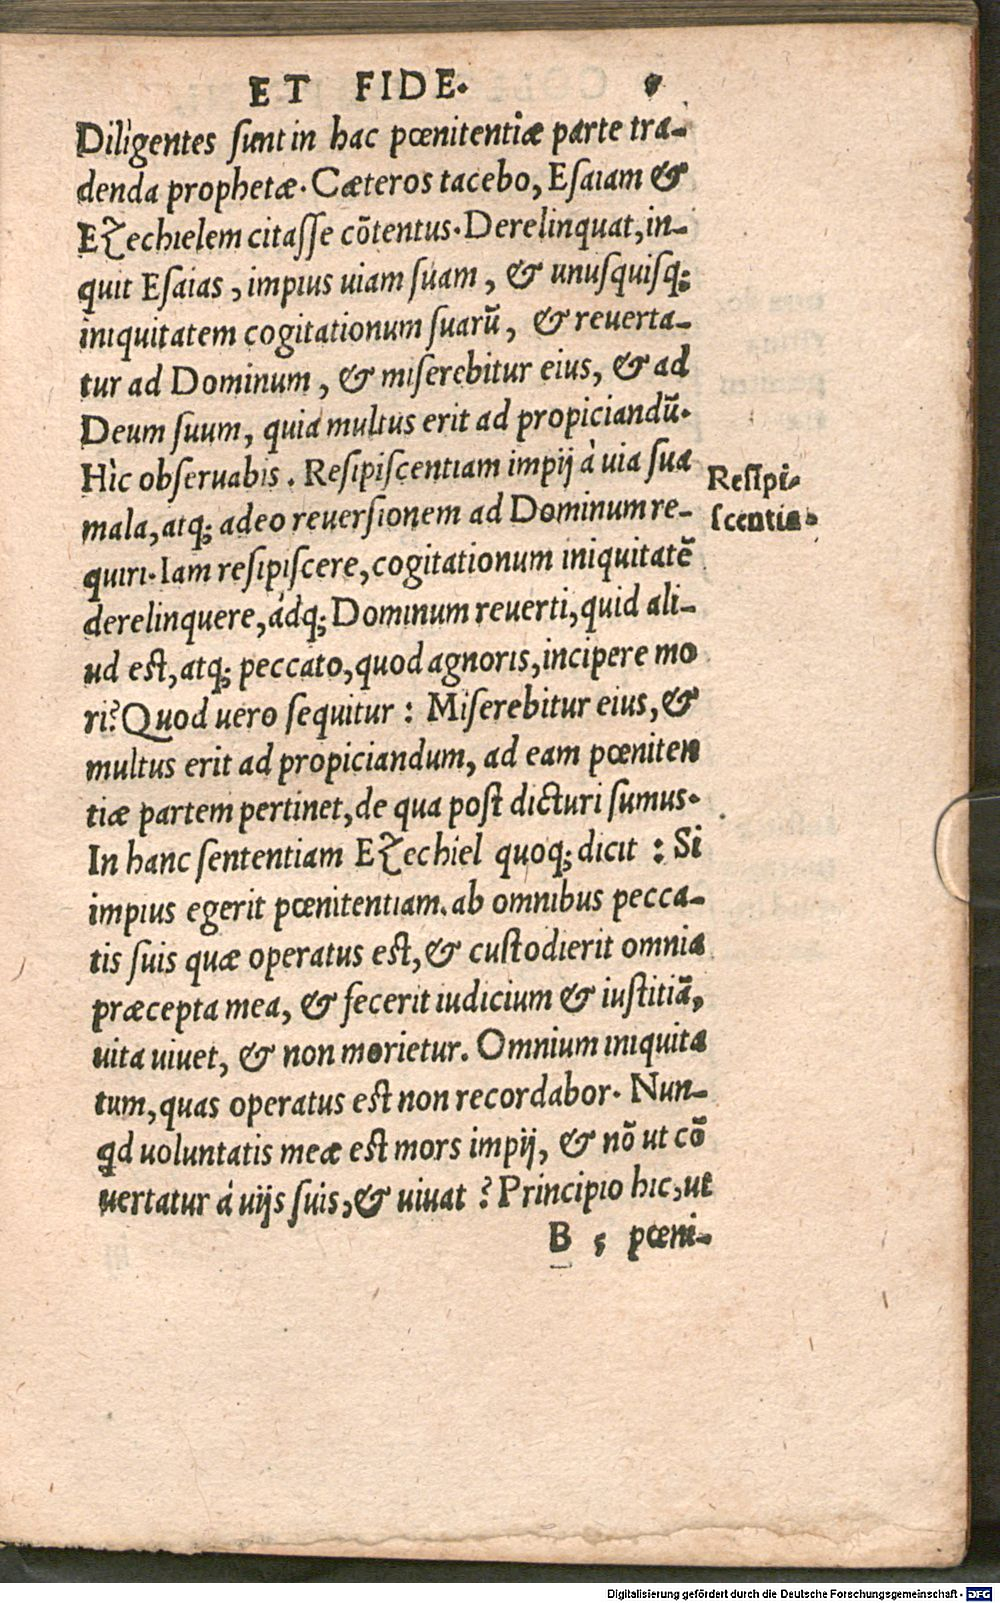 ET FIDE.
Diligentes sunt in hac pœnitentiæ parte tra-
denda prophetæ. Cæteros tacebo, Esaiam &
Ezechielem citasse cõtentus. Derelinquat, in-
quit Esaias, impius uiam suam, & unusquisq;
iniquitatem cogitationum suarũ, & reuerta-
tur ad Dominum, & miserebitur eius, & ad
Deum suum, quia multus erit ad propiciandũ.
Hìc obseruabis. Resipiscentiam impij à uia sua
mala, atq; adeo reuersionem ad Dominum re-
quiri. Iam resipiscere, cogitationum iniquitatẽ
derelinquere, adq; Dominum reuerti, quid ali-
ud est, atq; peccato, quod agnoris, incipere mo
ri? Quod uero sequitur : Miserebitur eius, &
multus erit ad propiciandum, ad eam pœniten
tiæ partem pertinet, de qua post dicturi sumus.
In hanc sententiam Ezechiel quoq; dicit : Si
impius egerit pœnitentiam. ab omnibus pecca-
tis suis quæ operatus est, & custodierit omnia
præcepta mea, & fecerit iudicium & iustitiã,
uita uiuet, & non morietur. Omnium iniquita
tum, quas operatus est non recordabor. Nun-
qd uoluntatis meæ est mors impij, & nõ ut cõ
uertatur à uijs suis, & uiuat ? Principio hic, ut
B 5 pœni-
Resipi-
scentia.
Digitalisierung gefördert durch die Deutsche Forschungsgemeinschaft - DFG